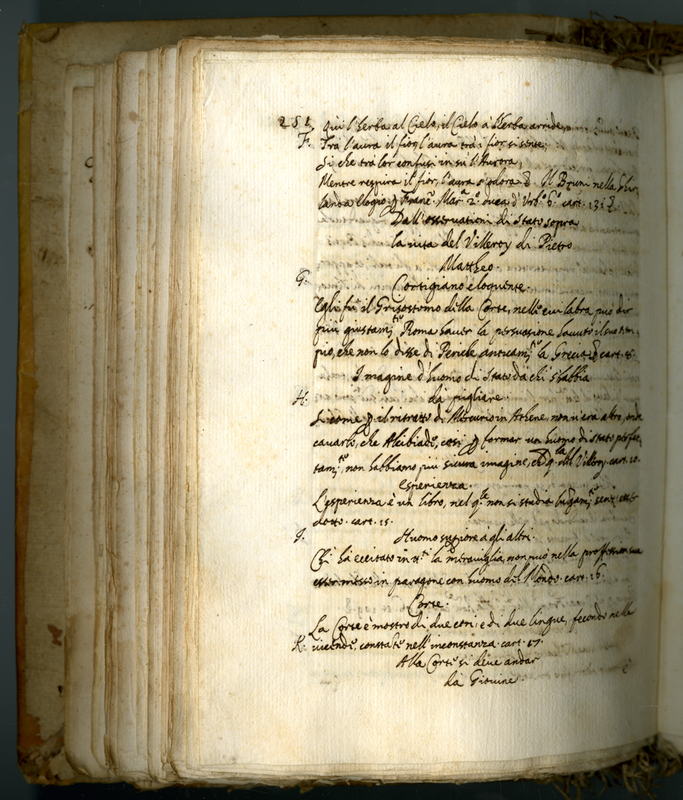 251. Qui l'herba al Cielo, il Cielo a l'herba arride,
F. Trà l'aura il fior, l'aura trà i fior si sente;
Si che trà lor confusi in sù l'Aurora,
Mentre respira il fior, l'aura s'odora. Il Bruni nella
Franc.º Mar.ª 2.º duca d'Urb.º 6.º cart. 131
Dall'osservationi di Stato sopra
la vita del Villeroy di Pietro
Mattheo.
G. Cortigiano eloquente.
Egli fù il Grisostomo della Corte, nelle cui labra può dir
più giustam.te Roma haver la persuasione havuto il suo tem
pio, che non lo disse di Pericle anticam.te la Grecia cart.
Imagine d'huomo di Stato da chi s'habbia
H. da pigliare.
Si come il ritratto di Mercurio in Athene, non v'era altro, onde
cavarlo, che Alcibiade, così formar un huomo di stato perfet
tam.te, non habbiamo più sicura imagine, che q.la del Villeroy. cart. 10.
Esperienza.
L'esperienza è un libro, nel q.le non si studia lungam.te senz'esser
dotto. cart. 15.
I. Huomo superiore à gli altri.
Chi hà eccitato in la meraviglia, non può nella professione sua
esser messo in paragone con huomo del Mondo. cart. 16.
Corte.
La Corte è mostro di due cori, e di due lingue, fecondo nelle
K. vicende, constante nell'inconstanza. cart. 17.
Alla Corte si deve andar
da Giovine.